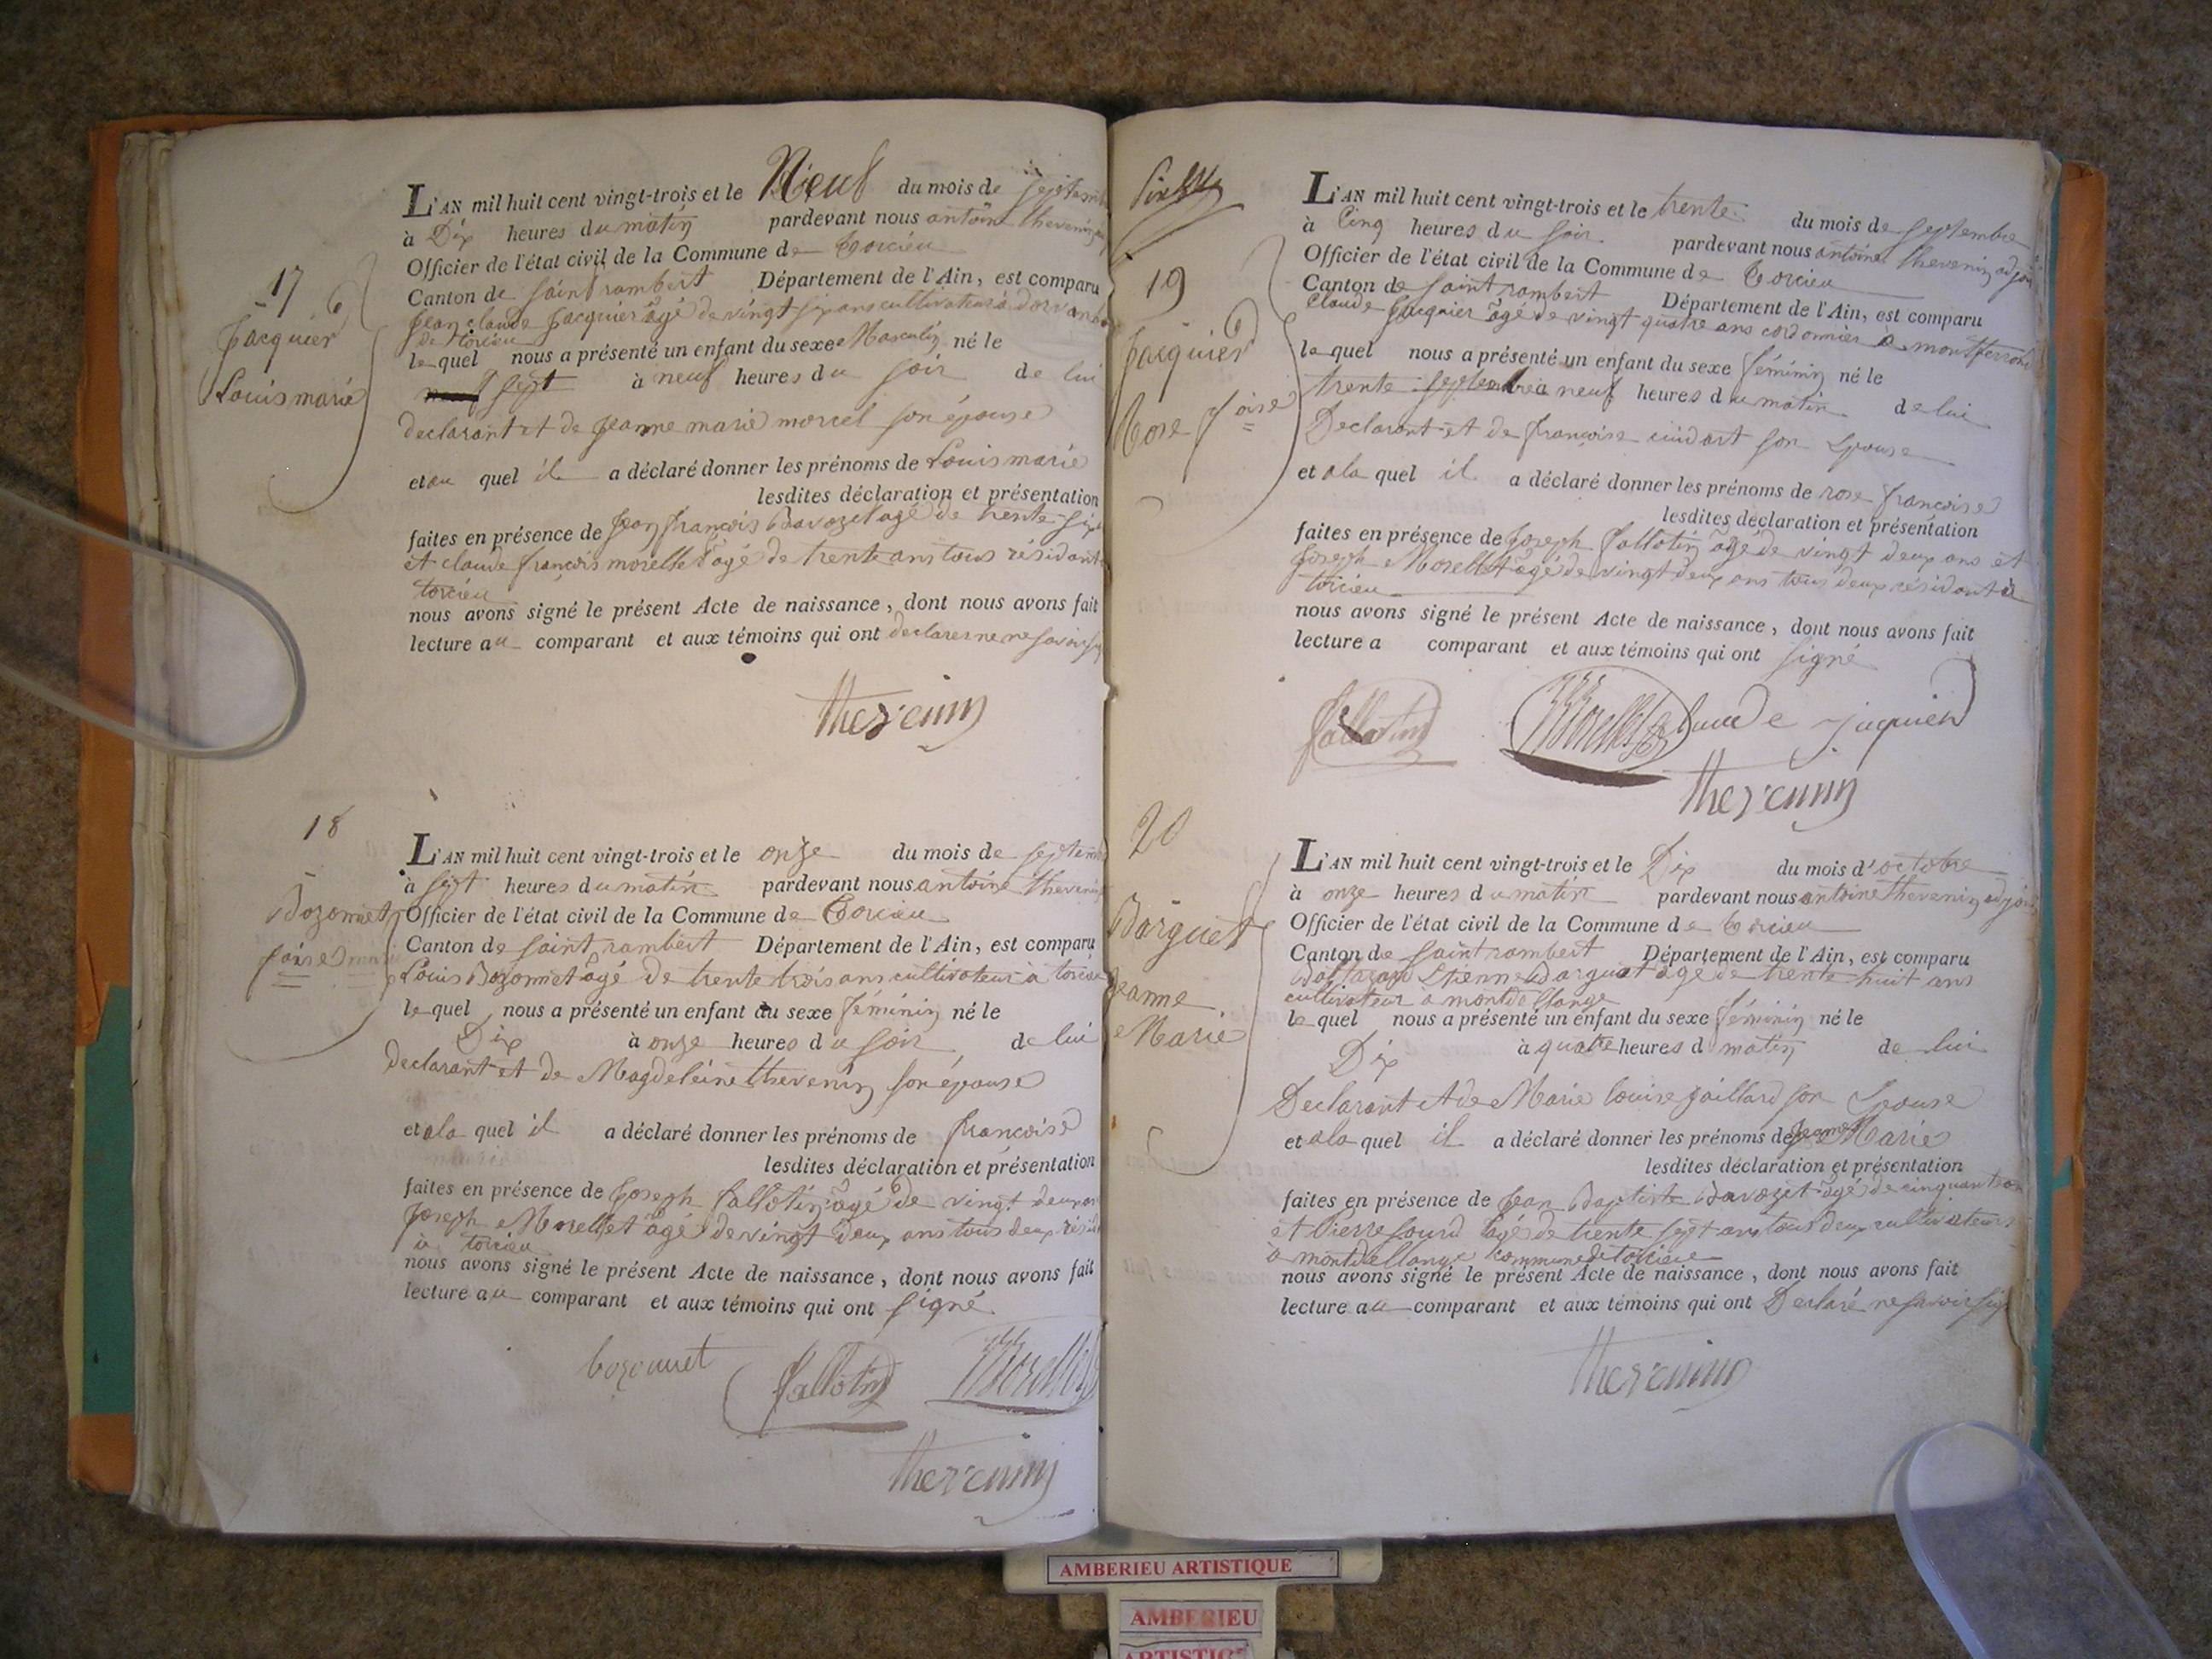 17
Jacquier
Louis marie
L'AN mil huit cent vingt-trois et le Neuf du mois de septembre
à Dix heures du matin pardevant nous antoine thevenin
Officier de l'état civil de la Commune de torcieu
Canton de saint rambert Département de l'Ain, est comparu
Jean claude Jacquier âgé de vingt six ans cultivateur à dorvan
de torcieu
lequel nous a présenté un enfant du sexe Masculin né le
sept à neuf heures du soir de lui
declarant et de Jeanne marie morcel son épouse
et au quel il a déclaré donner les prénoms de Louis marie
lesdites déclaration et présentation
faites en présence de Jean françois Bavozet agé de trente six
et claude françois morellet âgé de trente ans tous résidant
torcieu
nous avons signé le présent Acte de naissance, dont nous avons fait
lecture au comparant et aux témoins qui ont declarer ne savoir
thevenin
18
Bozonnet
foise marie
L'AN mil huit cent vingt-trois et le onze du mois de septembre
à sept heures du matin pardevant nous antoine thevenin
Officier de l'état civil de la Commune de torcieu
Canton de saint rambert Département de l'Ain, est comparu
Louis Bozonnet âgé de trente trois ans cultivateur à torcieu
lequel nous a présenté un enfant du sexe féminin né le
Dix à onze heures du soir de lui
declarant et de Magdeleine thevenin son épouse
et a la quel il a déclaré donner les prénoms de françoise
lesdites déclaration et présentation
faites en présence de Joseph fallotin âgé de vingt deux ans
Joseph Morellet âgé de vingt deux ans tous deux résid
à torcieu
nous avons signé le présent Acte de naissance, dont nous avons fait
lecture au comparant et aux témoins qui ont signé
bozonnet
fallotin
Morellet
thevenin
19
Jacquier
Rose foise
L'AN mil huit cent vingt-trois et le trente du mois de septembre
à Cinq heures du soir pardevant nous antoine thevenin adjoint
Officier de l'état civil de la Commune de torcieu
Canton de saint rambert Département de l'Ain, est comparu
Claude Jacquier âgé de vingt quatre ans cordonnier à montferrand
lequel nous a présenté un enfant du sexe féminin né le
trente septembre à neuf heures du matin de lui
Declarant et de françoise cuidart son Epouse
et a la quel il a déclaré donner les prénoms de rose françoise
lesdites déclaration et présentation
faites en présence de Joseph fallotin âgé de vingt deux ans et
Joseph Morellet âgé de vingt deux ans tous deux résidant à
torcieu
nous avons signé le présent Acte de naissance, dont nous avons fait
lecture a comparant et aux témoins qui ont signé
fallotin
Morellet
claude jaquier
thevenin
20
Barguet
Jeanne
Marie
L'AN mil huit cent vingt-trois et le Dix du mois d'octobre
à onze heures du matin pardevant nous antoine thevenin adjoint
Officier de l'état civil de la Commune de torcieu
Canton de saint rambert Département de l'Ain, est comparu
Baltazard Etienne Barguet âgé de trente huit ans
cultivateur à montdellange
lequel nous a présenté un enfant du sexe féminin né le
Dix à quatre heures d matin de lui
Declarant et de Marie louise gaillard son Epouse
et a la quel il a déclaré donner les prénoms de Jeanne Marie
lesdites déclaration et présentation
faites en présence de Jean Baptiste Bavozet âgé de cinquante
et Pierre sourd âgé de trente sept ans tous deux cultivateurs
à montdellange commune de torcieu
nous avons signé le présent Acte de naissance, dont nous avons fait
lecture au comparant et aux témoins qui ont Declaré ne savoir
thevenin
AMBERIEU ARTISTIQUE
AMBERIEU